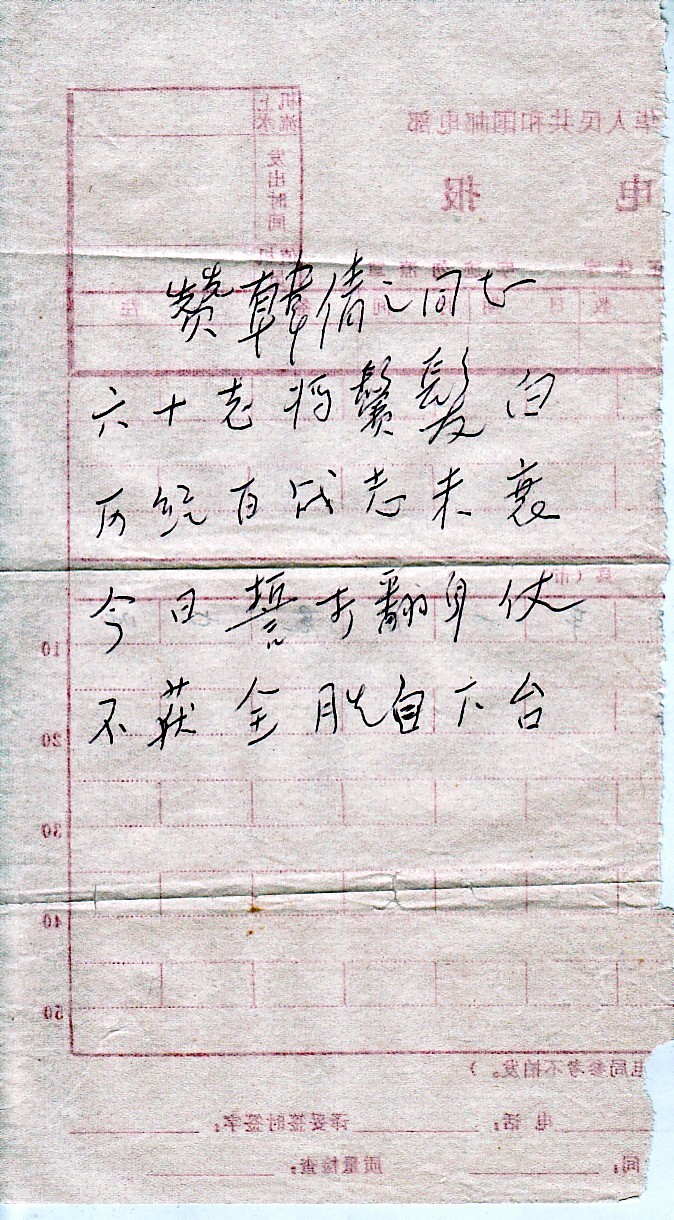 华人民共和国邮电部
电 报
机上
流水
发出时间
赞韩倩之同志
六十老将鬓髮白
历经百战志未衰
今日誓打翻身仗
不获全胜自下台
10
20
30
40
50
电局参考不拍发。)
电话:
译妥签时签字:
间:
质量检查: